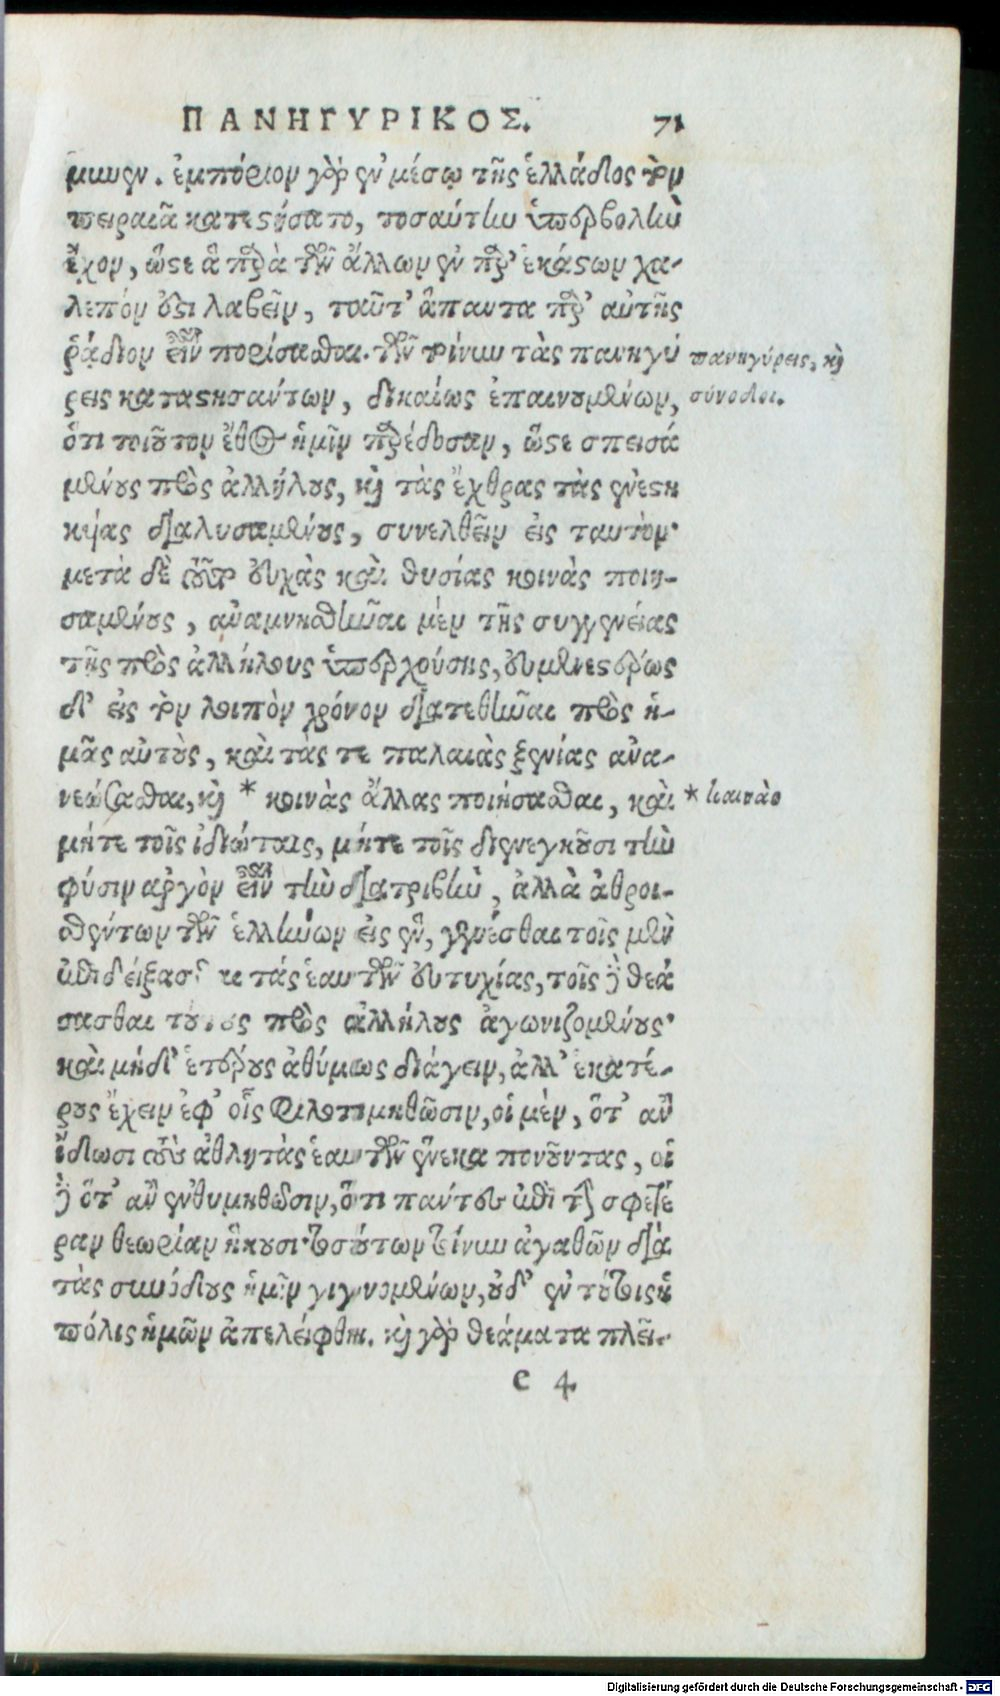 ΠΑΝΗΓΥΡΙΚΟΣ. 71
μυνεν. ἐμπόριον γὰρ ἐν μέσῳ τῆς ἑλλάδος τὸν
πειραιᾶ κατεστήσατο, τοσαύτην ὑπερβολὴν
ἔχον, ὥστε ἃ παρὰ τῶν ἄλλων ἓν παρ' ἑκάστων χα-
λεπόν ἐστι λαβεῖν, ταῦτ' ἅπαντα παρ' αὐτῆς
ῥᾴδιον εἶναι πορίσασθαι. τῶν τοίνυν τὰς πανηγύ
ρεις καταστησάντων, δικαίως ἐπαινουμένων,
πανηγύρεις, καὶ
σύνοδοι.
ὅτι τοιοῦτον ἔθος ἡμῖν παρέδοσαν, ὥστε σπεισα
μένους πρὸς ἀλλήλους, καὶ τὰς ἔχθρας τὰς ἐνεστη
κυίας διαλυσαμένους, συνελθεῖν εἰς ταυτόν·
μετὰ δὲ ταῦτ' εὐχὰς καὶ θυσίας κοινὰς ποιη-
σαμένους, ἀναμνησθῆναι μὲν τῆς συγγενείας
τῆς πρὸς ἀλλήλους ὑπαρχούσης, εὐμενεστέρως
δ' εἰς τὸν λοιπὸν χρόνον διατεθῆναι πρὸς ἡ-
μᾶς αὐτοὺς, καὶ τάς τε παλαιὰς ξενίας ἀνα-
νεώσασθαι, καὶ * κοινὰς ἄλλας ποιήσασθαι, καὶ
* καινὰς
μήτε τοῖς ἰδιώταις, μήτε τοῖς διενεγκοῦσι τὴν
φύσιν ἀργὸν εἶναι τὴν διατριβὴν, ἀλλὰ ἀθροι-
σθέντων τῶν ἑλλήνων εἰς ἓν, γενέσθαι τοῖς μὲν
ἐπιδείξασθαι τὰς ἑαυτῶν εὐτυχίας, τοῖς δὲ θεά
σασθαι τούτους πρὸς ἀλλήλους ἀγωνιζομένους·
καὶ μηδ' ἑτέρους ἀθύμως διάγειν, ἀλλ' ἑκατέ-
ρους ἔχειν ἐφ' οἷς φιλοτιμηθῶσιν, οἱ μὲν, ὅτ' ἂν
ἴδωσι τοὺς ἀθλητὰς ἑαυτῶν ἕνεκα πονοῦντας, οἱ
δὲ ὅτ' ἂν ἐνθυμηθῶσιν, ὅτι πάντες ἐπὶ τὴν σφετέ
ραν θεωρίαν ἥκουσι· τοσούτων τοίνυν ἀγαθῶν διὰ
τὰς συνόδους ἡμῖν γιγνομένων, οὐδ' ἐν τούτοις ἡ
πόλις ἡμῶν ἀπελείφθη. καὶ γὰρ θεάματα πλεῖ-
e 4
Digitalisierung gefördert durch die Deutsche Forschungsgemeinschaft - DFG